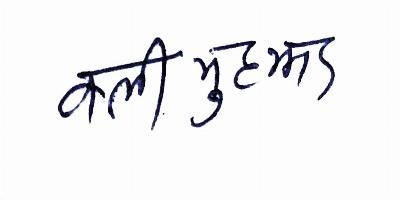 वली मुहम्मद